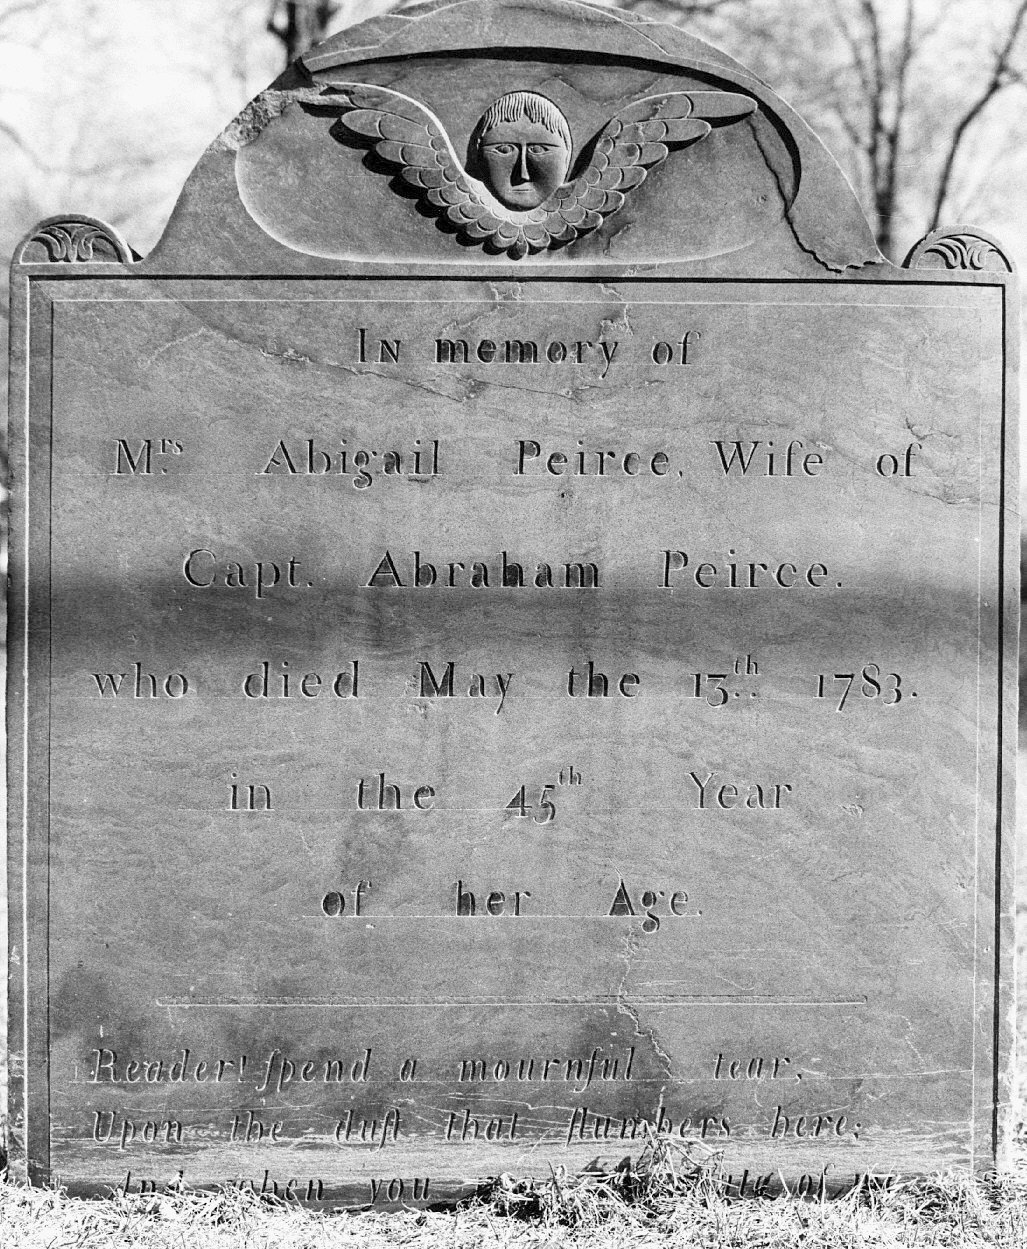 In memory of
Mrs. Abigail Peirce, Wife of
Capt. Abraham Peirce.
who died May the 13th. 1783.
in the 45th Year
of her Age.
Reader! ſpend a mournful tear,
Upon the duſt that ſlumbers here;
And when you of me